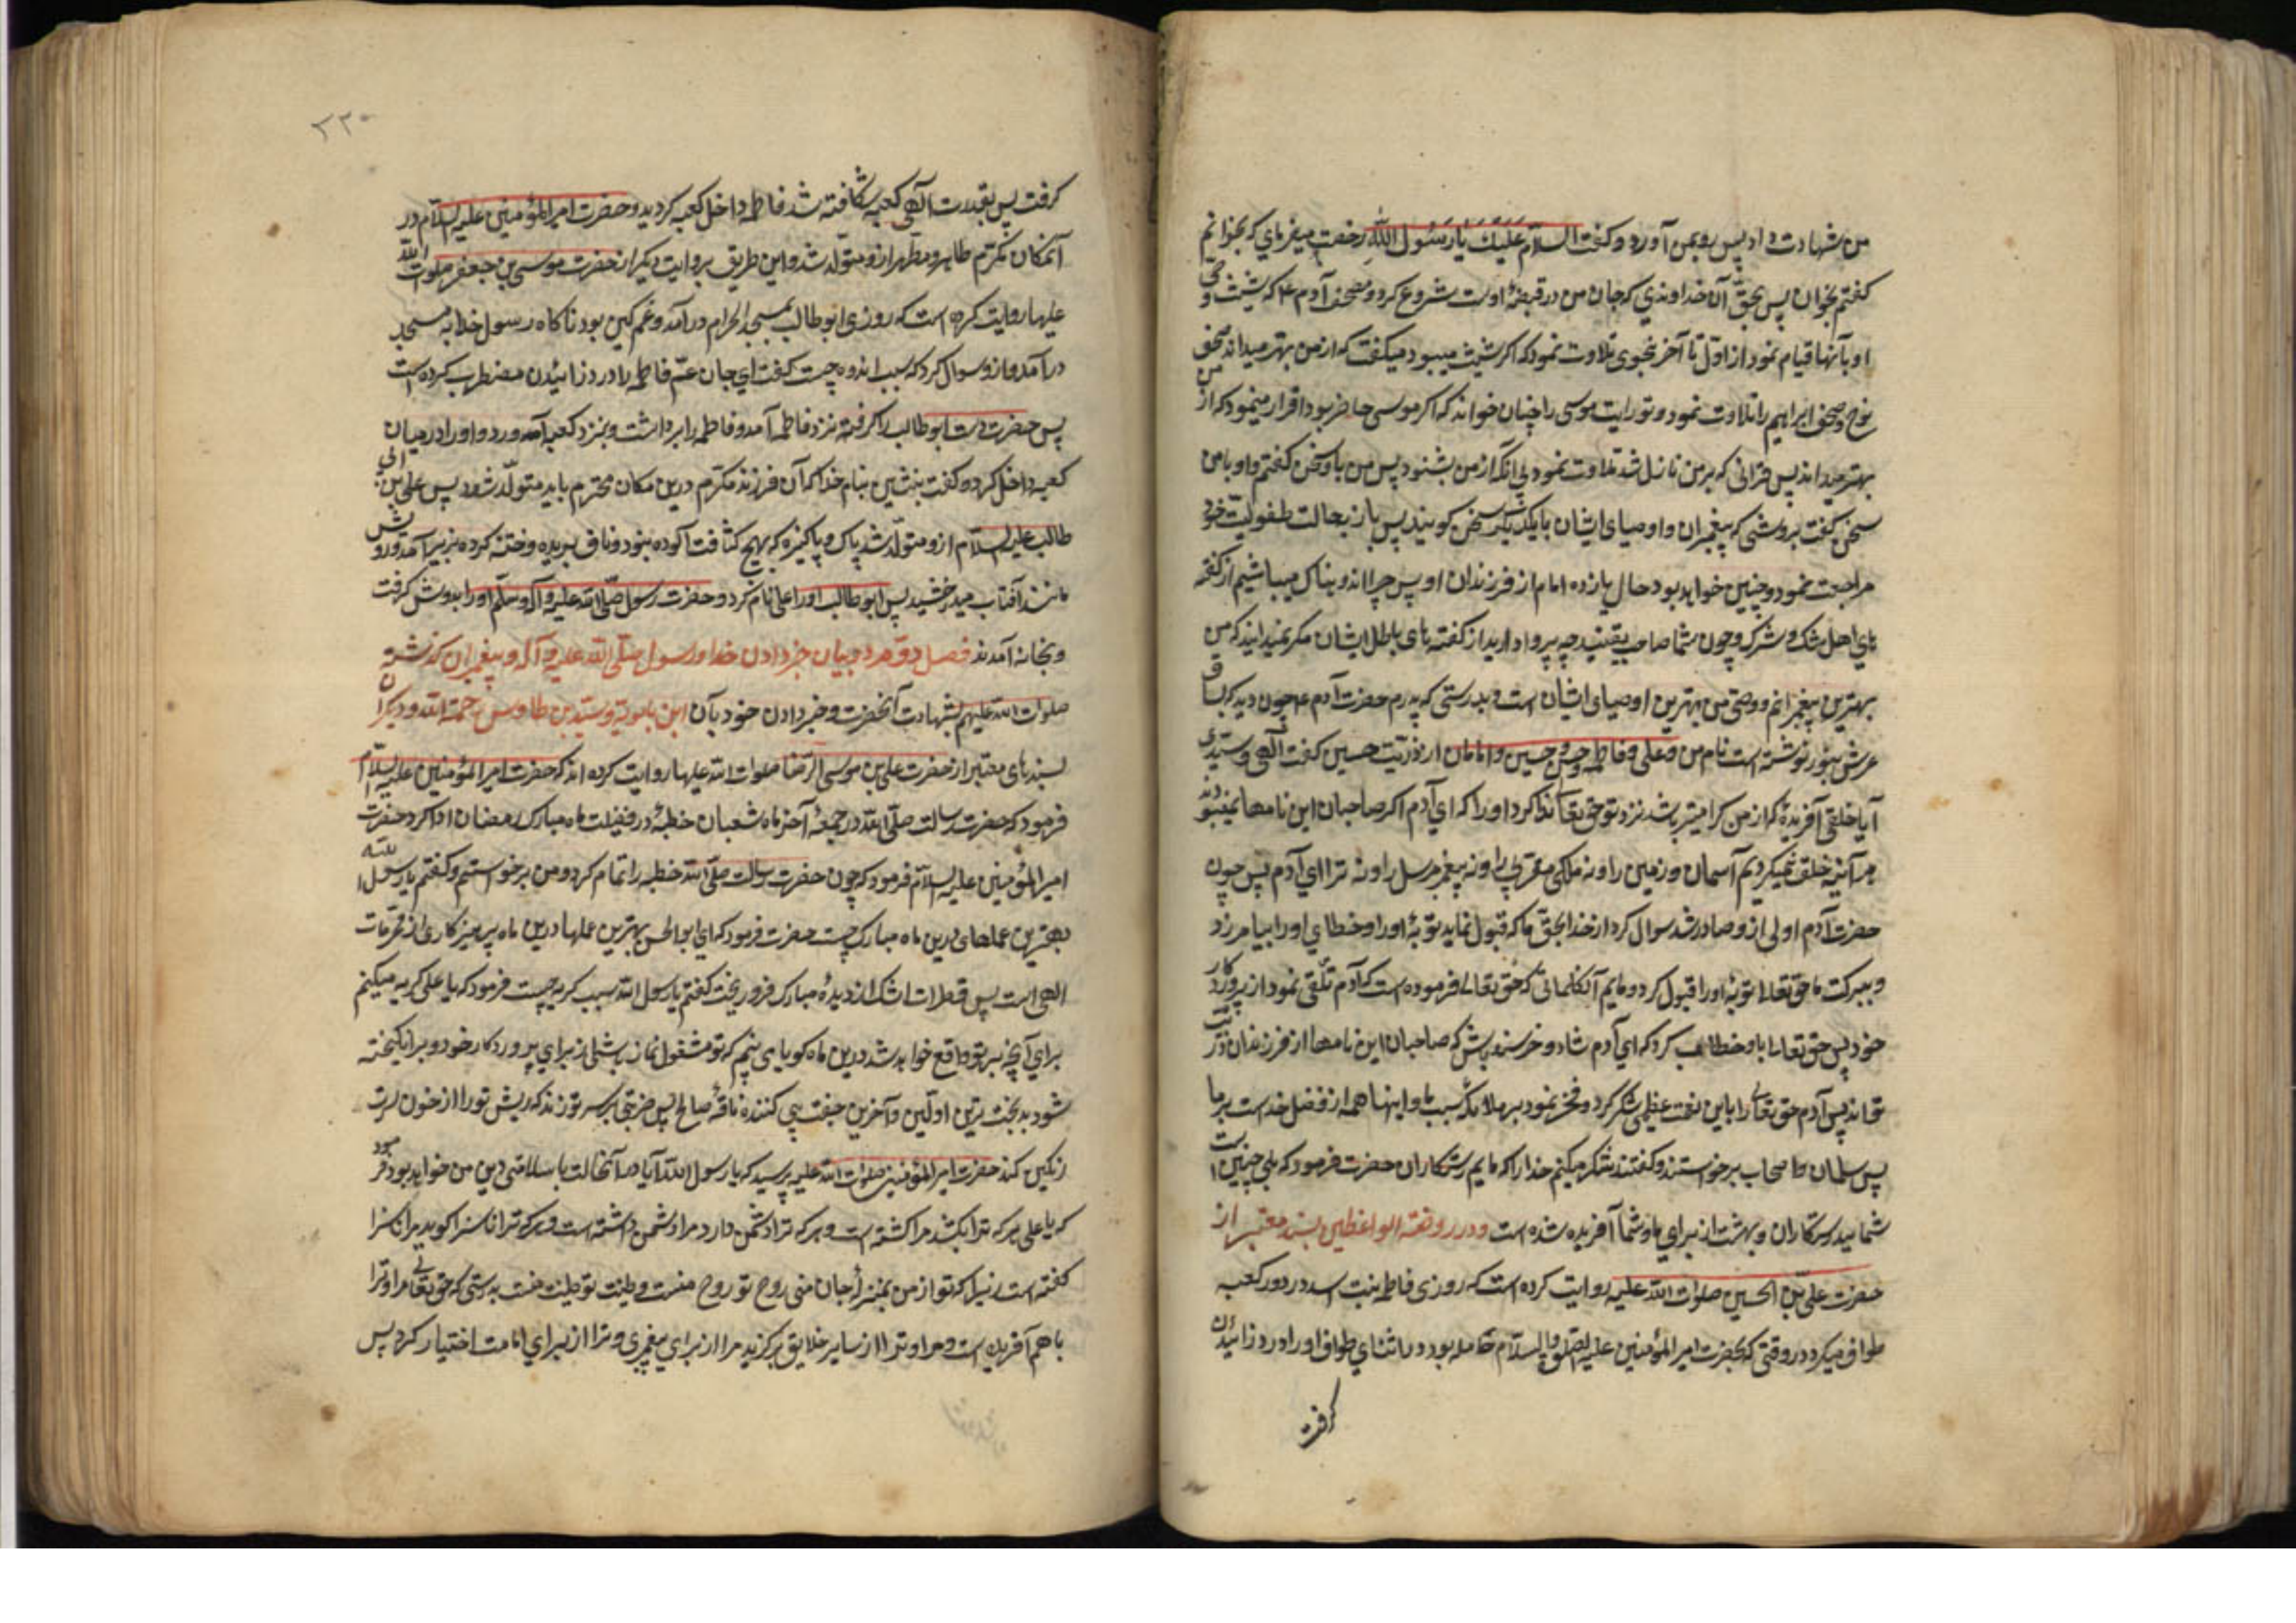 من شهادت داد پس رو بمن آورد و کفت السلام علیک یا رسول الله رخصت میفرمای که بخوانم
کفتم بخوان پس بحق آن خداوندی که جان من در قبضهٔ اوست شروع کرد و صحف آدم ع که شیث
او بآنها قیام نمود از اول تا آخر بنحوی تلاوت نمود که اکر شیث میبود میکفت که از من بهتر میداند صحف
نوح و صحف ابراهیم را تلاوت نمود و تورایت موسی را چنان خواند که اکر موسی حاضر بود اقرار مینمود که از من
بهتر میداند پس قرانی که بر من نازل شد تلاوت نمود بی آنکه از من بشنود پس من باو سخن کفتم و او با من
سخن کفت بروشی که پیغمبران و اوصیای ایشان با یکدیکر سخن کویند پس باز بحالت طفولیت خود
مراجعت نمود و چنین خواهد بود حال یازده امام از فرزندان او پس چرا اندوهناک میباشیم از کفته
های اهل شک و شرک و چون شما صاحب یقینید چه پروا دارید از کفته های باطل ایشان مکر نمیدانید که من
بهترین پیغمبرانم و وصی من بهترین اوصیای ایشان است و بدرستی که پدرم حضرت آدم ع چون دید که بساق
عرش بنور نوشته است نام من و علی و فاطمه و حسن و حسین و امامان از ذریت حسین کفت الهی و سیدی
آیا خلقی آفریدهٔ که از من کرامیتر باشد نزد تو حق تعالی ندا کرد او را که ای آدم اکر صاحبان این نامها نمیبودند
هر آینه خلق نمیکردیم آسمان و زمین را و نه ملکی مقربی را و نه پیغمبر مرسل را و نه ترا ای آدم پس چون
حضرت آدم اولی ازو صادر شد سوال کرد از خدا بحق ما که قبول نماید توبهٔ او را و خطای او را بیامرزد
و ببرکت ما حق تعالی توبهٔ او را قبول کرد و مایم آنکلماتی که حق تعالی فرموده است که آدم تلقی نمود از پروردکار
خود پس حق تعالی باو خطاب کرد که ای آدم شاد و خرسند باش که صاحبان این نامها از فرزندان و ذریت
تواند پس آدم حق تعالی را باین نعمت عظمی شکر کرد و فخر نمود بر ملائکه بسبب ما و اینها همه از فضل خداست بر ما
پس سلمان و اصحاب برخواستند و کفتند شکر میکنیم خدا را که مایم رستکاران حضرت فرمود که بلی چنین است
شمایید رستکاران و بهشت از برای ما و شما آفریده شده است و در روضة الواعظین بسند معتبر از
حضرت علی بن الحسین صلوات الله علیه روایت کرده است که روزی فاطمه بنت اسد در دور کعبه
طواف میکرد در وقتی که بحضرت امیر المؤمنین علیه الصلوة والسلام حامله بود در اثنای طواف او را درد زائیدن
کرفت
٣٢٠
کرفت پس بقدرت الهی کعبه شکافته شد فاطمه داخل کعبه کردید و حضرت امیر المؤمنین علیه السلام در
آنمکان مکرم طاهر و مطهر ازو متولد شد و این طریق بروایت دیکر از حضرت موسی بن جعفر صلوت الله
علیهما روایت کرده است که روزی ابو طالب بمسجد الحرام در آمد و غمکین بود ناکاه رسول خدا به مسجد
در آمد و ازو سوال کرد که سبب اندوه چیست کفت ای جان عم فاطمه را درد زائیدن مضطرب کرده است
پس حضرت دست ابو طالب را کرفته نزد فاطمه آمد و فاطمه را برداشت و بنزد کعبه آورد و او را در میان
کعبه داخل کرد و کفت بنشین بنام خدا که آن فرزند مکرم درین مکان محترم باید متولد شود پس علی بن ابی
طالب علیه السلام ازو متولد شد پاک و پاکیزه که بهیچ کثافت آلوده نبود و ناف بریده و ختنه کرده بزیر آمد و رویش
مانند آفتاب میدرخشید پس ابو طالب او را علی نام کرد و حضرت رسول صلی الله علیه و آله وسلم او را بدوش کرفت
و بخانه آمدند فصل دوم در بیان خبر دادن خدا و رسول صلی الله علیه و آله و پیغمبران کذشته
صلوات الله علیهم بشهادت آنحضرت و خبر دادن خود بآن ابن بابویه و سید بن طاوس رحمة الله و دیکران
بسندهای معتبر از حضرت علی بن موسی الرضا صلوات الله علیهما روایت کرده اند که حضرت امیر المؤمنین علیه السلام
فرمود که حضرت رسالت صلی الله در جمعهٔ آخر ماه شعبان خطبهٔ در فضیلت ماه مبارک رمضان ادا کرد حضرت
امیر المؤمنین علیه السلام فرمود که چون حضرت رسالت صلی الله خطبه را تمام کرد و من برخواستم و کفتم یا رسول الله
بهترین عملهای درین ماه مبارک چیست حضرت فرمود که ای ابو الحسن بهترین عملها درین ماه پرهیزکاری از محرمات
الهی است پس قطرات اشک از دیدهٔ مبارک فرو ریخت کفتم یا رسول الله سبب کریه چیست فرمود که یا علی کریه میکنم
برای آنچه بر تو واقع خواهد شد درین ماه کویا می بینم که تو مشغول نماز باشی از برای پروردکار خود و برانکیخته
شود بدبخت ترین اولین و آخرین جفت پی کننده ناقهٔ صالح پس ضربتی بر سر تو زند که ریش تو را از خون سرت
رنکین کند حضرت امیر المؤمنین صلوات الله علیه پرسید که یا رسول الله آیا در آنحالت با سلامتی دین من خواهد بود فرمود
که یا علی هر که ترا بکشد مرا کشته است و هر که ترا دشمن دارد مرا دشمن داشته است و هر که ترا ناسزا کوید مرا ناسزا
کفته است زیرا که تو از من بمنزلهٔ جان منی روح تو روح منست و طینت تو طینت منست بدرستی که حق تعالی مرا و ترا
با هم آفریده است و مرا و ترا از سایر خلایق برکزید مرا از برای پیغمبری و ترا از برای امامت اختیار کرد پس